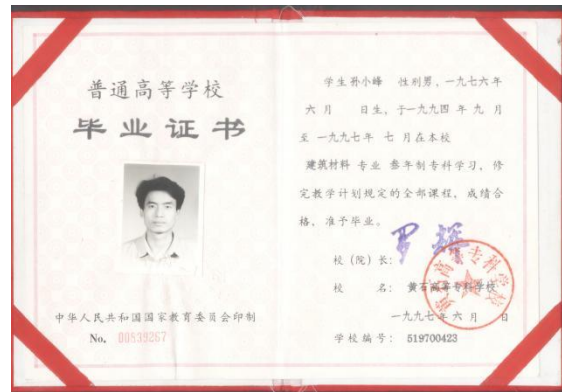 普通高等学校
毕业证书
中华人民共和国国家教育委员会印制
No. 00839267
学生孙小峰 性别男，一九七六年
六月 日生，于一九九四年九月
至一九九七年七月在本校
建筑材料专业叁年制专科学习，修
完教学计划规定的全部课程，成绩合
格，准予毕业。
校（院）长：
校 名：黄石高等专科学校
一九九七年六月 日
学校编号：519700423